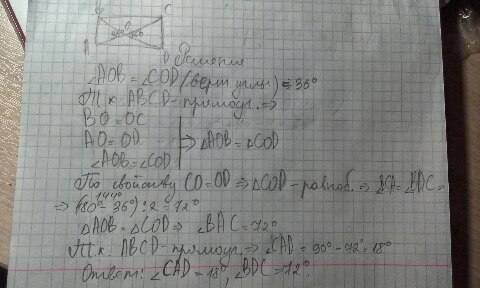 B C
A D
36° 36°
Решение
∠AOB = ∠COD (верт углы) = 36°
Т.к. ABCD - прямоуг. ⇒
BO = OC
AO = OD ⇒ △AOB = △COD
∠AOB = ∠COD
По свойству CO = OD ⇒ △COD - равноб. ⇒ = ∠BDC ⇒
144°
⇒ (180° - 36°) : 2 = 72°
△AOB = △COD ⇒ ∠BAC = 72°
Т.к. ABCD - прямоуг. ⇒ ∠CAD = 90° - 72° = 18°
Ответ: ∠CAD = 18°, ∠BDC = 72°.